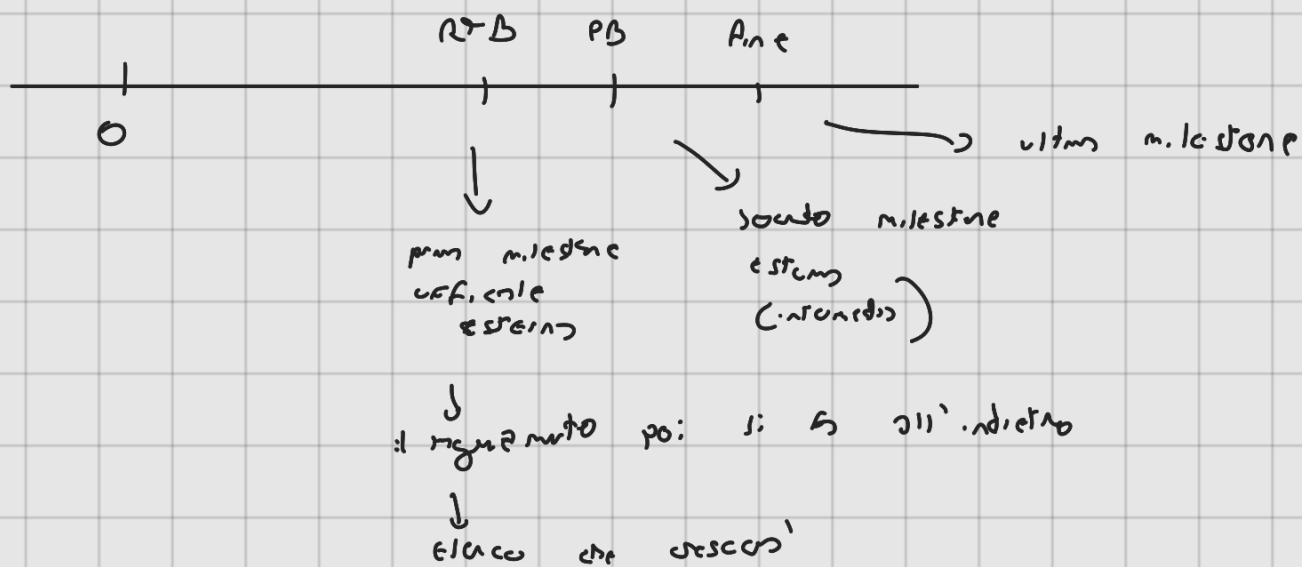 RTB PB Fine
0
ultima milestone
prima milestone
ufficiale
esterna
seconda milestone
esterna
(intermedia)
il ragionamento poi si fa all'indietro
Elenco che crescerà